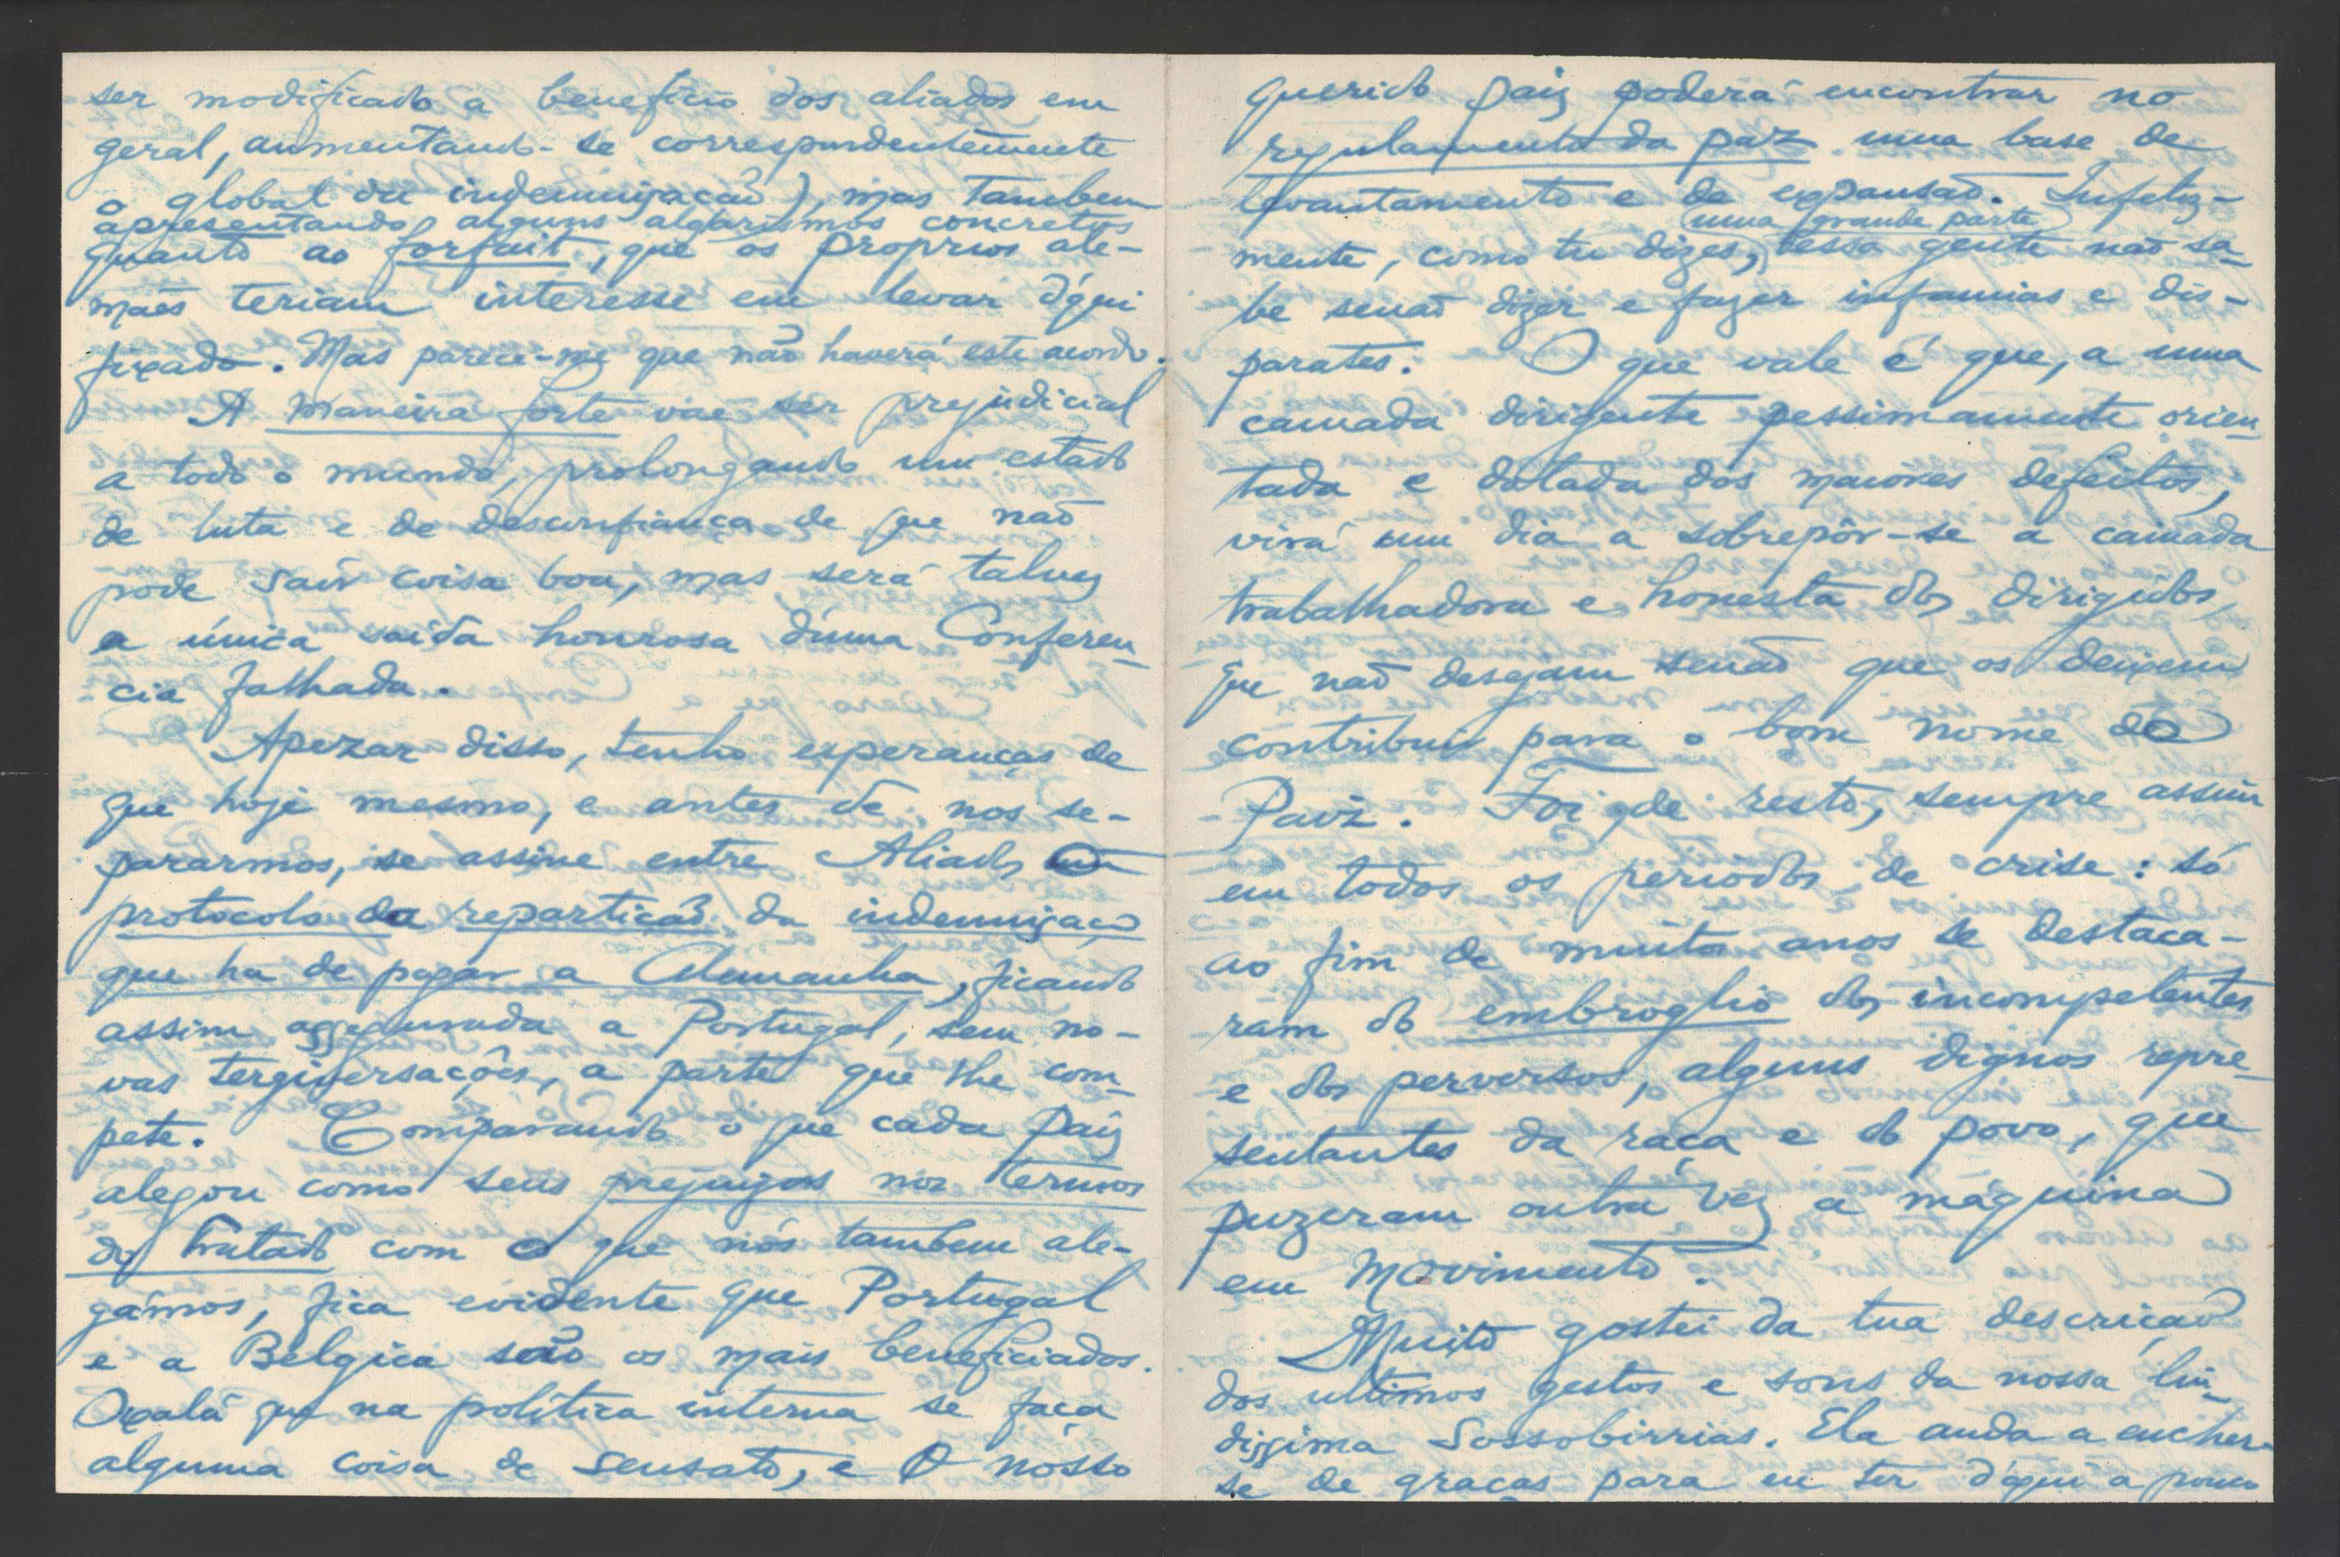 ser modificado a beneficio dos aliados em
geral, aumentando-se correspondentemente
o global da indemnização), mas tambem
apresentando alguns algarismos concretos
quanto ao forfait, que os proprios ale-
mães teriam interesse em levar d'aqui
fixado. Mas parece-me que não haverá este acordo.
A maneira forte vae ser prejudicial
a todo o mundo, prolongando um estado
de luta e de desconfiança de que não
pode sair coisa boa, mas será talvez
a única saída honrosa d'uma Conferen-
cia falhada.
Apezar disso, tenho esperanças de
que hoje mesmo, e antes de nos se-
pararmos, se assine entre Aliados um
protocolo da repartição da indemnização
que ha de pagar a Alemanha, ficando
assim assegurada a Portugal, sem no-
vas tergiversações, a parte que lhe com-
pete. Comparando o que cada paiz
alegou como seus prejuizos nos termos
do tratado com o que nós tambem ale-
gámos, fica evidente que Portugal
e a Belgica são os mais beneficiados.
Oxalá que na politica interna se faça
alguma coisa de sensato, e o nosso
querido paiz poderá encontrar no
regulamento da paz uma base de
levantamento e de expansão. Infeliz-
uma grande parte
mente, como tu dizes, dessa gente não sa-
be senão dizer e fazer infamias e dis-
parates. O que vale é que, a uma
camada dirigente pessimamente orien-
tada e dotada dos maiores defeitos,
virá um dia a sobrepôr-se a camada
trabalhadora e honesta dos dirigidos,
que não desejam senão que os deixem
contribuir para o bom nome do
Paiz. Foi, de resto, sempre assim
em todos os periodos de crise: só
ao fim de muitos anos se destaca-
ram do embroglio dos incompetentes
e dos perversos, alguns dignos repre-
sentantes da raça e do povo, que
puzeram outra vez a máquina
em movimento.
Muito gostei da tua descrição
dos ultimos gestos e sons da nossa lin-
dissima Sossobirrias. Ela anda a encher-
se de graças para eu ter d'aqui a pouco